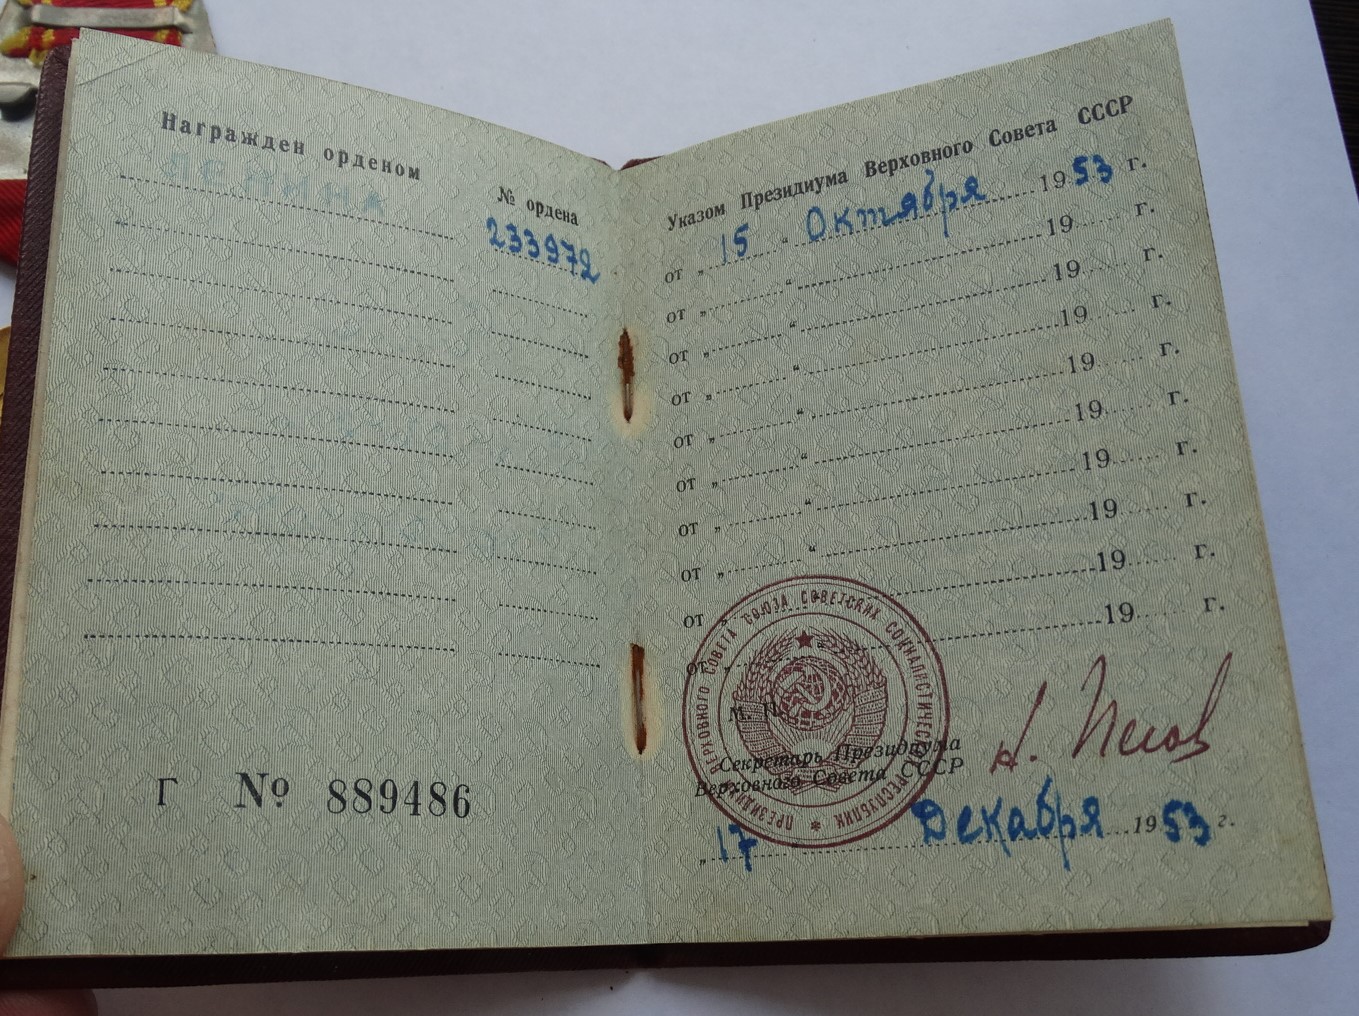 Награжден орденом
№ ордена
ЛЕНИНА
233972
Г № 889486
Указом Президиума Верховного Совета СССР
от „ 15 “ Октября 1953 г.
от „ “ 19 г.
от „ “ 19 г.
от „ “ 19 г.
от „ “ 19 г.
от „ “ 19 г.
от „ “ 19 г.
от „ “ 19 г.
от „ “ 19 г.
от „ “ 19 г.
М. П.
Секретарь Президиума
Верховного Совета СССР
Н. Пегов
„ 17 Декабря 1953 г.
ПРЕЗИДИУМ ВЕРХОВНОГО СОВЕТА СОЮЗА СОВЕТСКИХ СОЦИАЛИСТИЧЕСКИХ РЕСПУБЛИК